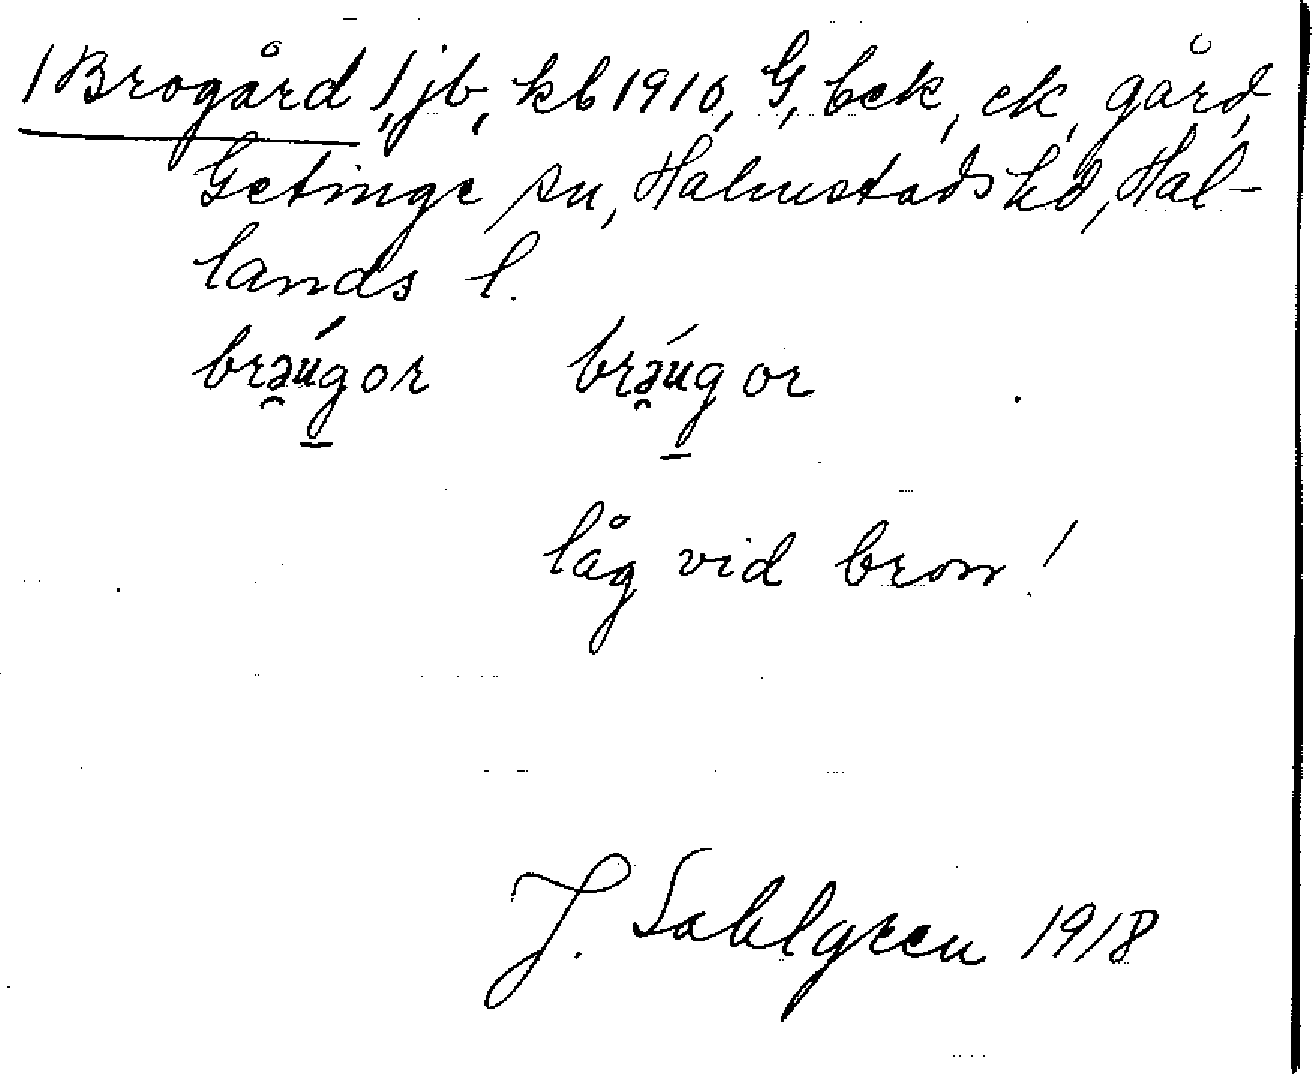 /Brogård/, jb, kb 1910, G, bek, ek, gård,
Getinge sn, Halmstads hd, Hal-
lands l.
brə̯úgor brə̯úgor
låg vid bron!
J. Sahlgren 1918